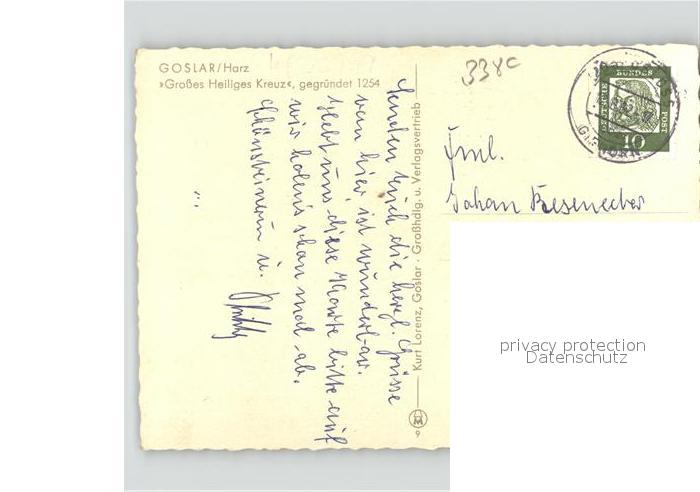 GOSLAR/Harz
»Großes Heiliges Kreuz«, gegründet 1254
Senden Euch die herzl. Grüsse
von hier ist wunderbar.
Hebt uns diese Karte bitte auf
wir holen's schon mal ab.
u.
Kurt Lorenz, Goslar · Großhdlg. u. Verlagsvertrieb
9
338c
DEUTSCHE BUNDESPOST
10
Fml.
Johan Besenecker
privacy protection
Datenschutz